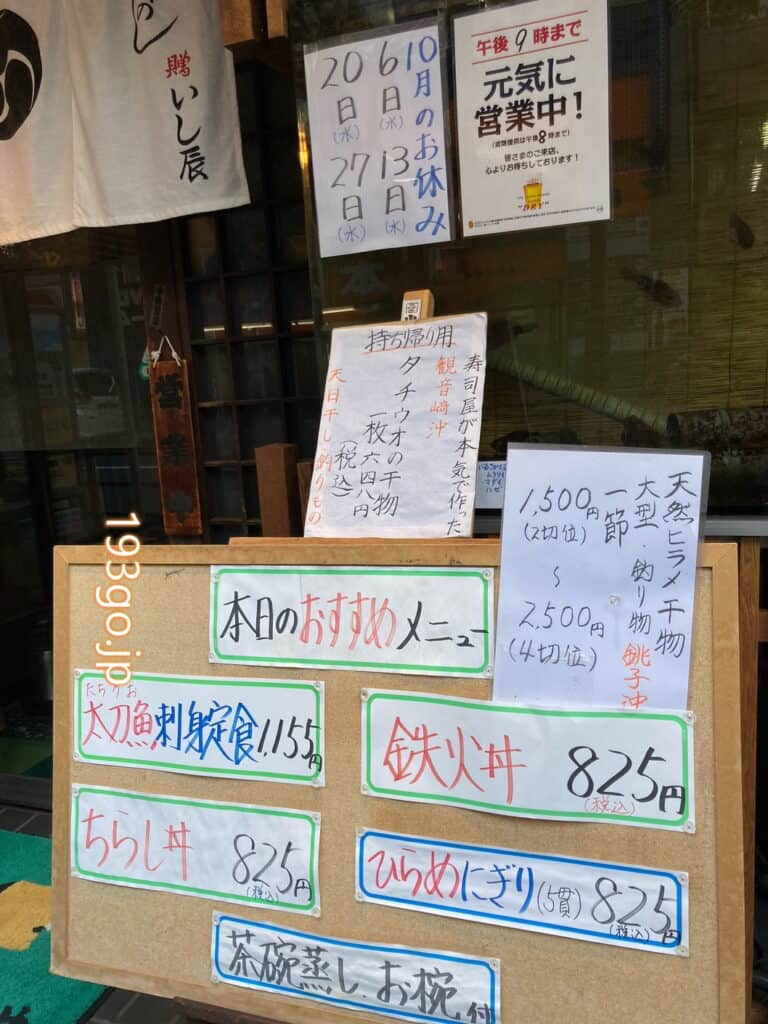 贈
いし辰
10月のお休み
6日(水)
13日(水)
20日(水)
27日(水)
午後9時まで
元気に
営業中!
(酒類提供は午後8時まで)
皆さまのご来店、
心よりお待ちしております!
営業中
持ち帰り用
寿司屋が本気で作った
観音崎沖
タチウオの干物
一枚六四八円
(税込)
天日干し釣りもの
天然ヒラメ干物
大型・釣り物 銚子沖
一節
1,500円
(2切位)
~
2,500円
(4切位)
193go.jp
本日のおすすめメニュー
たちうお
太刀魚刺身定食 1,155円
鉄火丼 825円
(税込)
ちらし丼 825円
(税込)
ひらめにぎり(5貫) 825円
(税込)
茶碗蒸し、お椀付